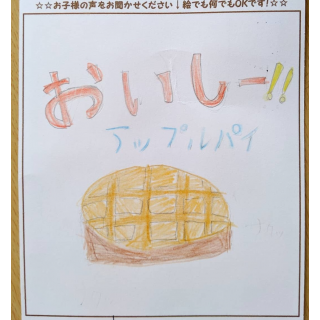 ☆☆お子様の声をお聞かせください↓絵でも何でもOKです!☆☆
おいしー!!
アップルパイ